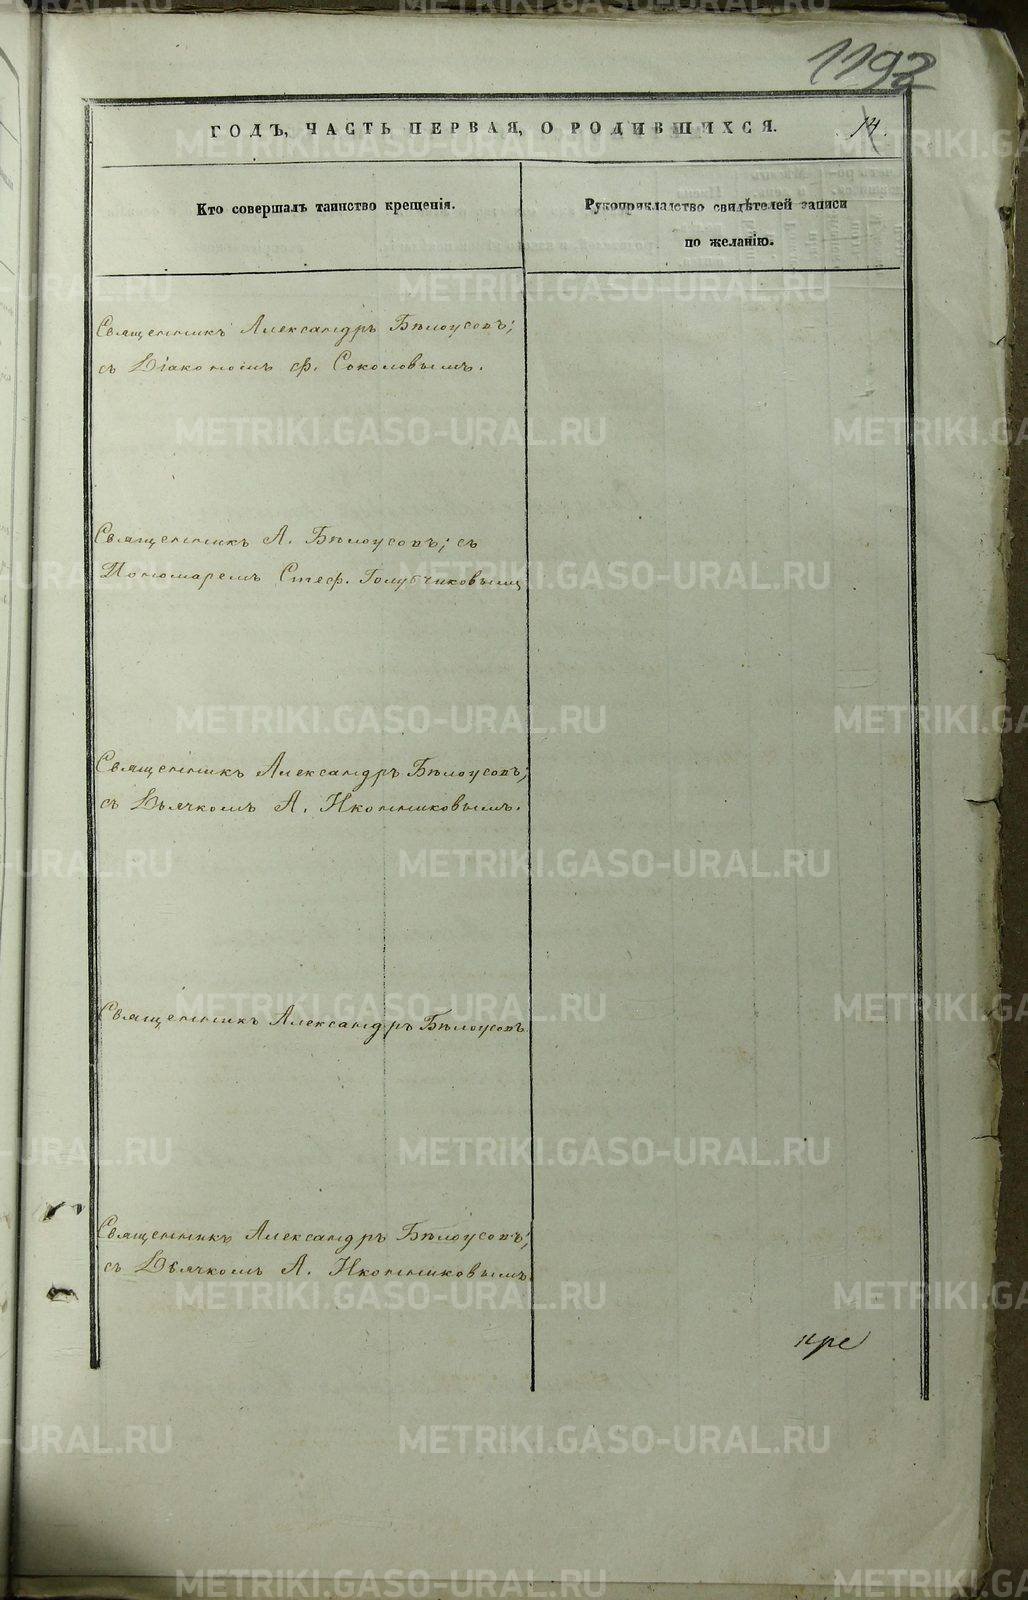 1192
ГОДЪ, ЧАСТЬ ПЕРВАЯ, О РОДИВШИХСЯ. 14.
Кто совершалъ таинство крещенія.
Рукоприкладство свидѣтелей записи
по желанію.
Священникъ Александръ Бѣлоусовъ;
съ Діакономъ Ф. Соколовымъ.
Священникъ А. Бѣлоусовъ; съ
Пономаремъ Стеф. Голубчиковымъ
Священникъ Александръ Бѣлоусовъ;
съ Дьячкомъ А. Иконниковымъ.
Священникъ Александръ Бѣлоусовъ
Священникъ Александръ Бѣлоусовъ;
съ Дьячкомъ А. Иконниковымъ.
пре
METRIKI.GASO-URAL.RU